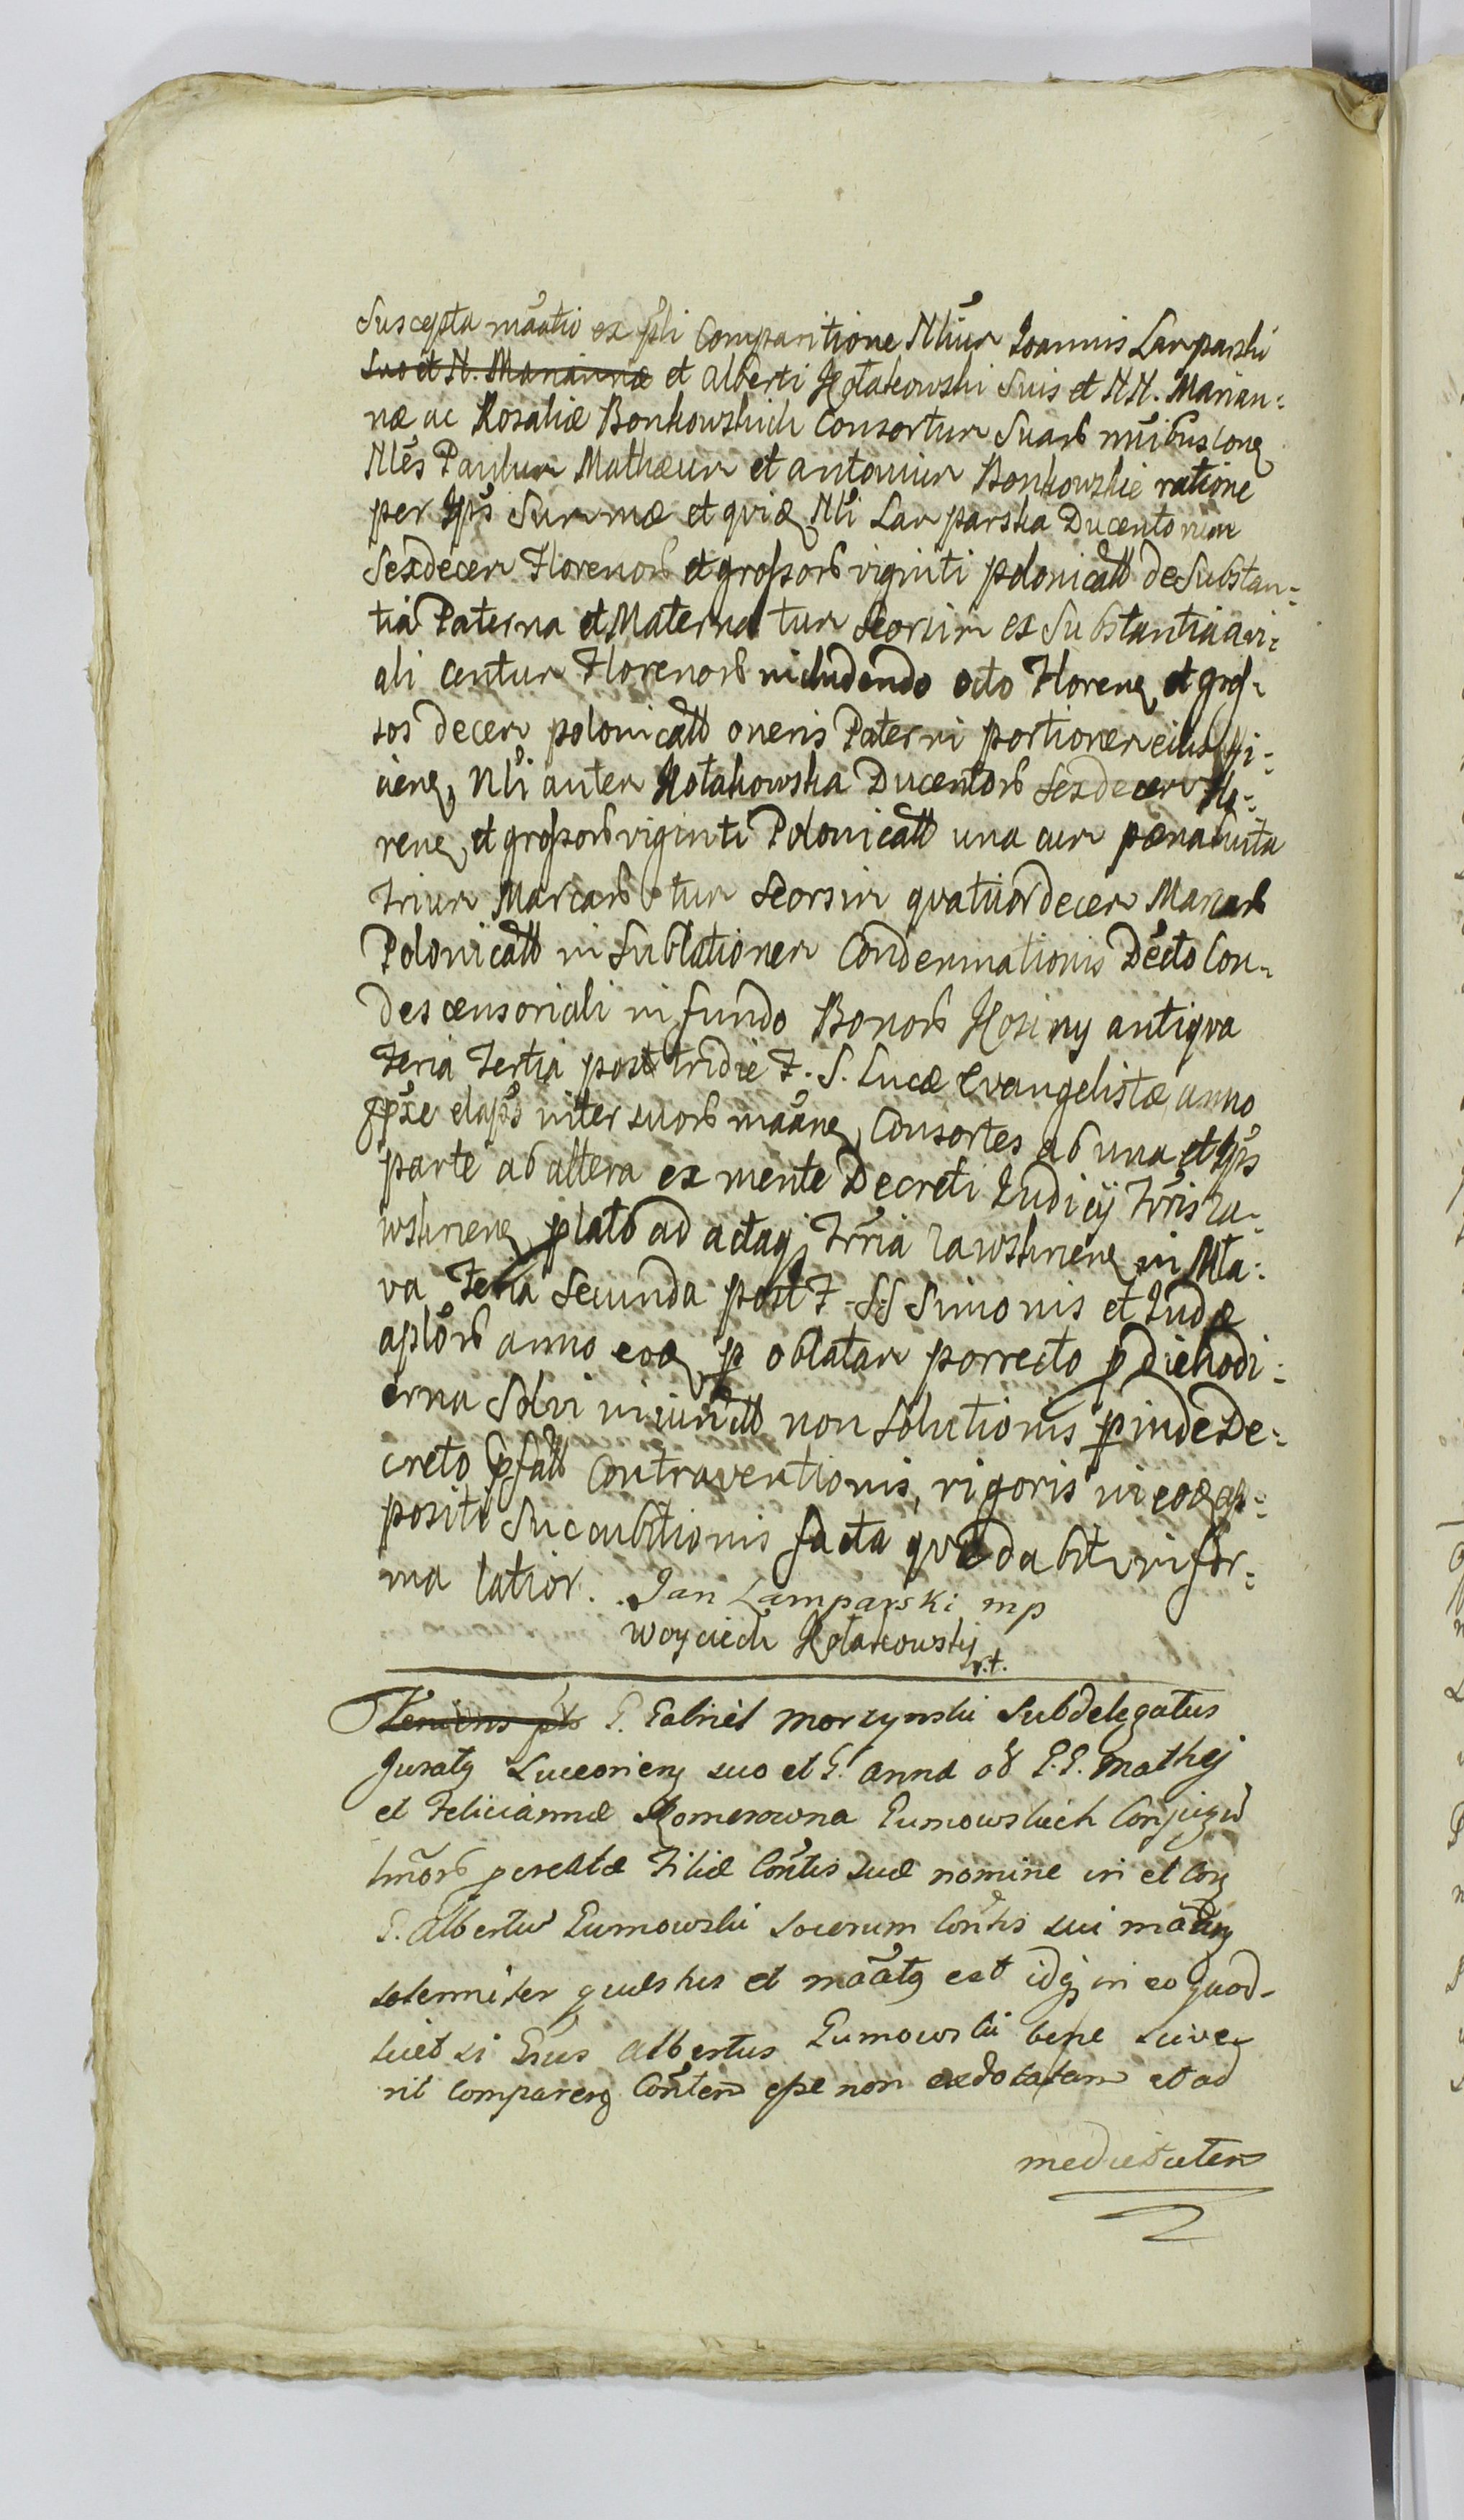 Suscepta mãatio ex pñti Comparitione Nliũ Joannis Lamparski
Suo et N. Mariannæ et Alberti Kołakowski Suis et NN. Marian=
næ ac Rosaliæ Bonkowskich Consortum Suarb nũibus Conq
Nles Paulum Mathæum et Antonium Bonkowskie ratione
per Ips Summæ et quidẽ Nli Lamparska Ducentorum
Sexdecem Florenorb et grossorb viginti polonicall de Substan=
tia Paterna et Materna tum Seorsim ex Substantia avi=
ali Centum Florenorb includendo octo Floreñ et gros=
sos decem polonicall oneris Paterni portionem eius
Nli autem Kołakowska Ducentorb Sexdecem Flo=
reñ et grossorb viginti Polonicall una cum pæna luita
trium Marcarb tum Seorsim quatuordecem Marcarb
Polonicall in Sublationem Condemnationis Decto Con=
descensoriali in fundo Bonorb Kosiny antiqua
Feria Tertia post tridie F. S. Lucæ Evangelistæ anno
pxe elaps inter suorb mãane Consortes ab una et Ips
parte ab altera ex mente Decreti Judicij Trris ra=
wskiene plato ad actaq Trria rawskiene in Mla=
va Feria Secunda post F. SS Simonis et Judæ
aplorb anno eoq p oblatam porrecto p die hodi=
erna Solvi iniunctt non Solutionis pinde De=
creto pfatt Contraventionis, rigoris in eodẽ ap=
positi Succubitionis facta quæ dabitur in for=
ma latior. Jan Lamparski mp
Woyciech Kołakowsky
r.t.
G. Gabriel Morzynski Subdelegatus
Juratq Luceoriens suo et G. Anna od G.G. Mathej
et Feliciannæ Komerowna Gumowskich Conjugũ
hmorb procreatæ Filiæ Contis suæ nomine in et Conq
G. Albertũ Gumowski Socerum Conthis sui
solenniter questus et mãatq est idq in eo quod
licet si Grus Albertus Gumowski bene scive=
rit Compareng Contem esse non exdotatam et ad
medietatem